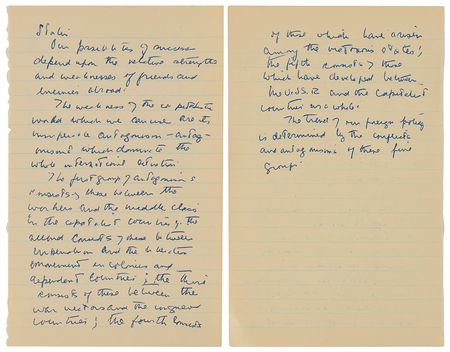 Stalin
Our possibilities of success
depend upon the relative strengths
and weaknesses of friends and
enemies abroad.
The weakness of the capitalistic
world which we can use are its
insuperable antagonisms – antag-
onisms which dominate the
whole international situation.
The first group of antagonisms
consists of those between the
workers and the middle class
in the capitalist countries; the
second consists of those between
imperialism and the liberation
movement in colonies and
dependent countries; the third
consists of those between the
war victors and the conquered
countries; the fourth consists
of those which have arisen
among the victorious states;
the fifth consists of those
which have developed between
the USSR and the capitalist
countries as a whole.
The trend of our foreign policy
is determined by the conflicts
and antagonisms of these five
groups.